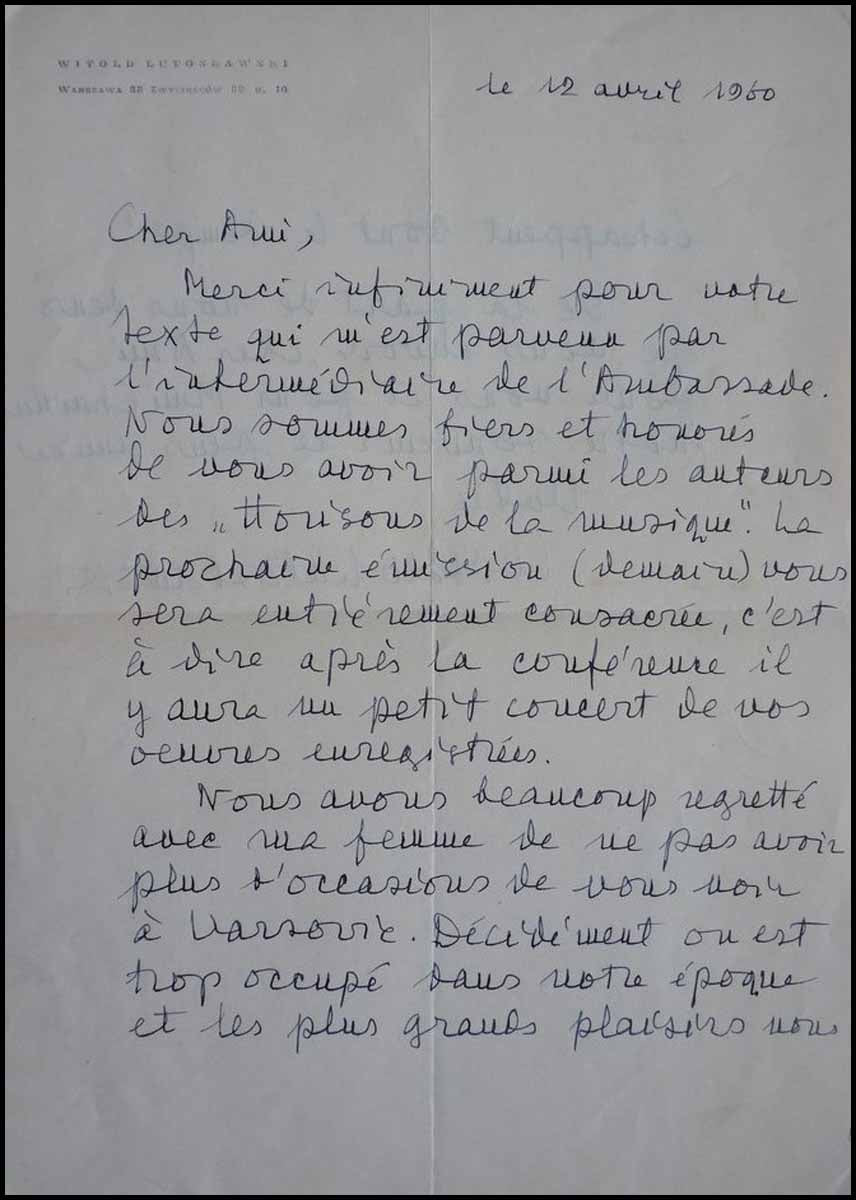 WITOLD LUTOSŁAWSKI
WARSZAWA 32 ZWYCIĘZCÓW 39 M. 10
le 12 avril 1960
Cher Ami,
Merci infiniment pour votre
texte qui m'est parvenu par
l'intermédiaire de l'Ambassade.
Nous sommes fiers et honorés
de vous avoir parmi les auteurs
des „Horisons de la musique". La
prochaine émission (demain) vous
sera entièrement consacrée, c'est
à dire après la conférence il
y aura un petit concert de vos
oeuvres enregistrées.
Nous avons beaucoup regretté
avec ma femme de ne pas avoir
plus d'occasions de vous voir
à Varsovie. Décidément on est
trop occupé dans notre époque
et les plus grands plaisirs nous